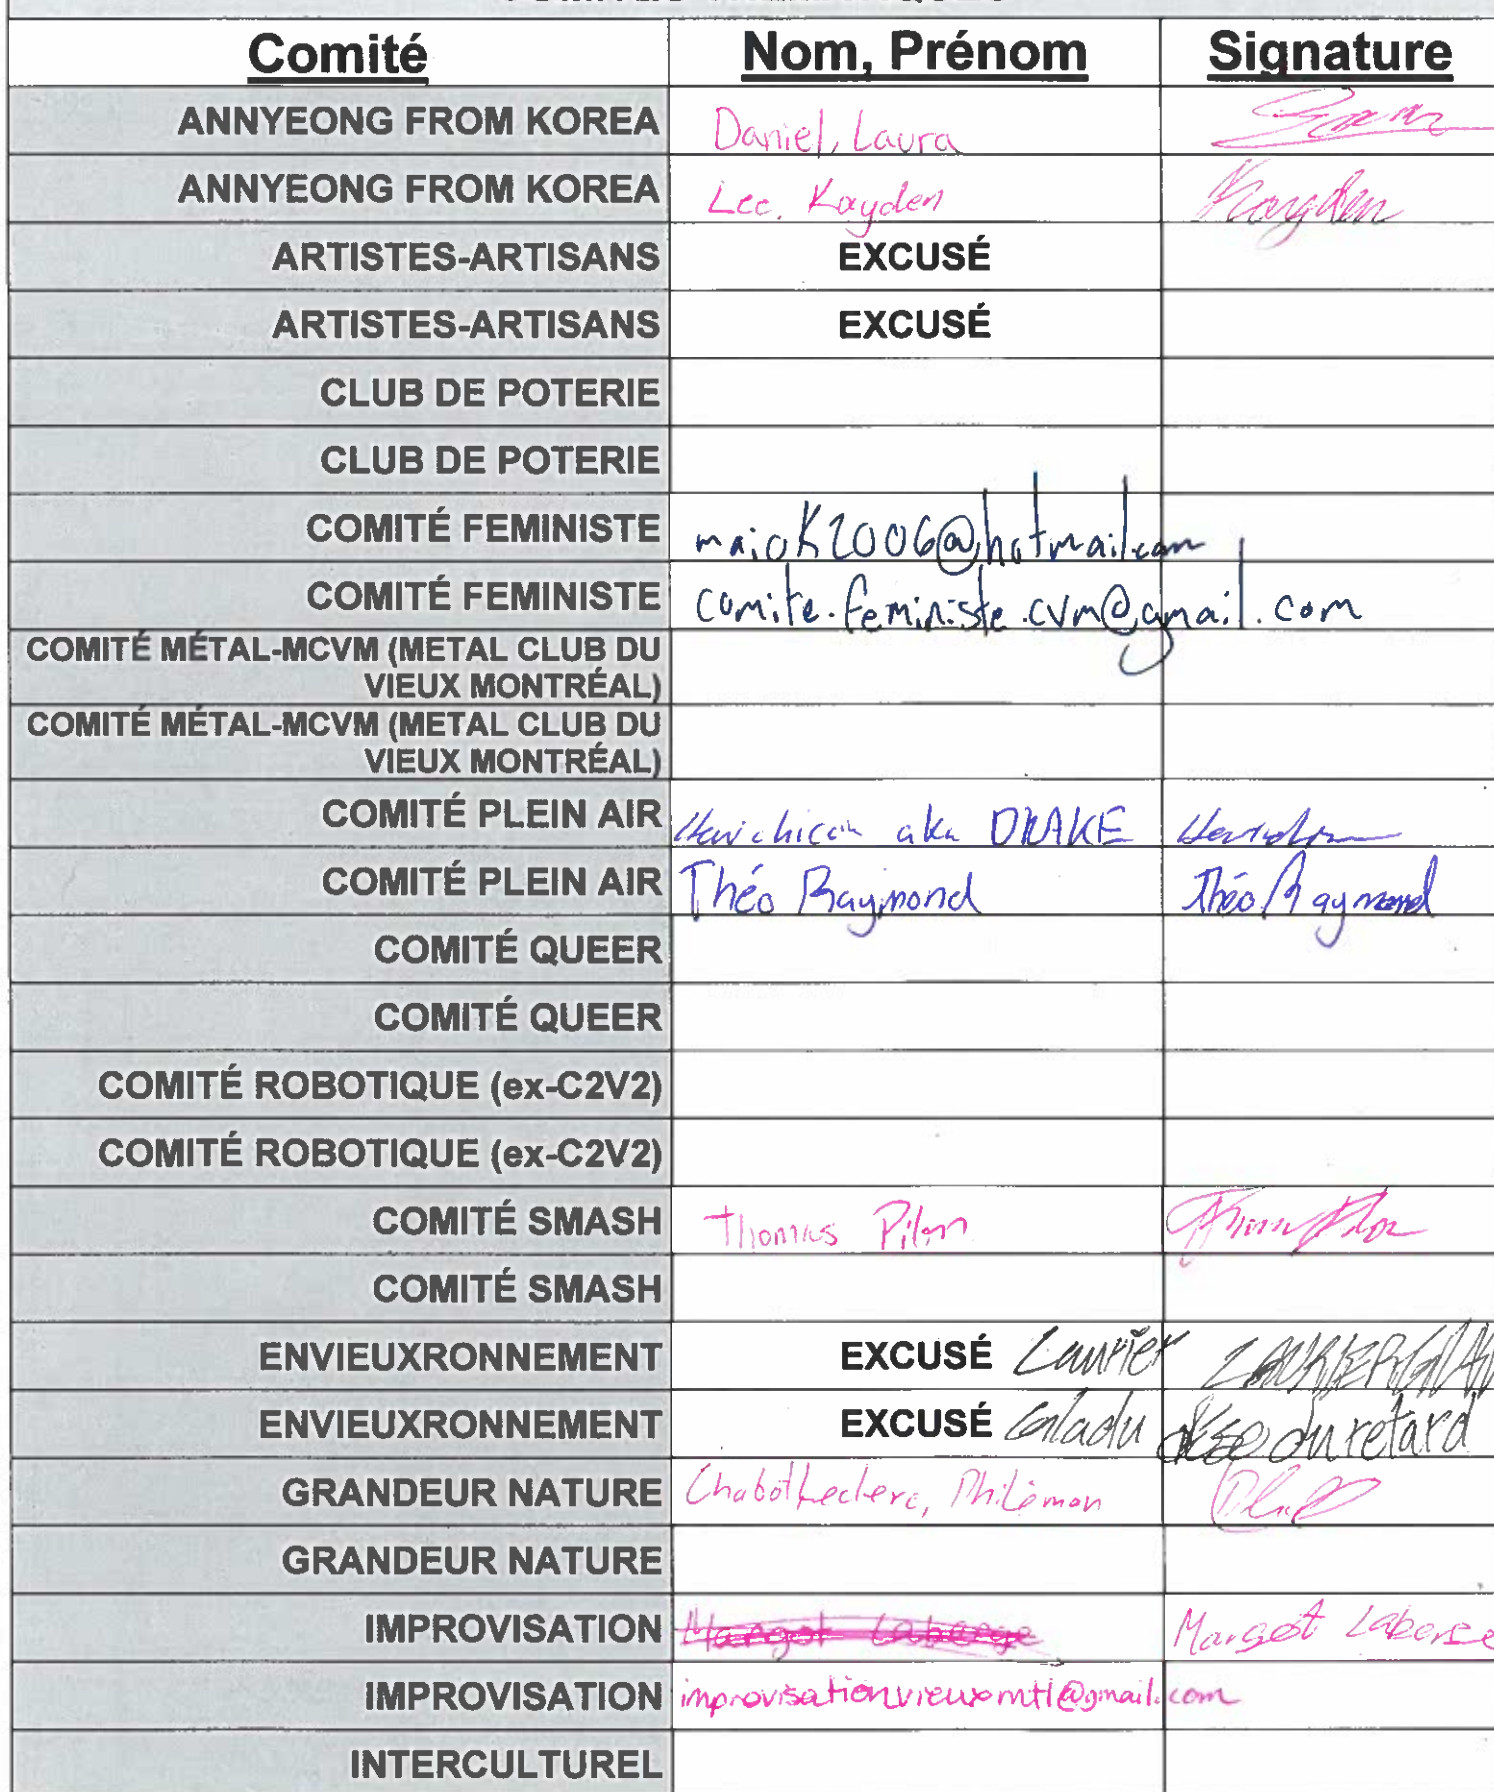 Comité Nom, Prénom Signature
ANNYEONG FROM KOREA Daniel, Laura
ANNYEONG FROM KOREA Lee, Kayden Kayden
ARTISTES-ARTISANS EXCUSÉ
ARTISTES-ARTISANS EXCUSÉ
CLUB DE POTERIE
CLUB DE POTERIE
COMITÉ FEMINISTE maiok2006@hotmail.com
COMITÉ FEMINISTE comite.feministe.cvm@gmail.com
COMITÉ MÉTAL-MCVM (METAL CLUB DU
VIEUX MONTRÉAL)
COMITÉ MÉTAL-MCVM (METAL CLUB DU
VIEUX MONTRÉAL)
COMITÉ PLEIN AIR aka DRAKE
COMITÉ PLEIN AIR Théo Raymond Théo Raymond
COMITÉ QUEER
COMITÉ QUEER
COMITÉ ROBOTIQUE (ex-C2V2)
COMITÉ ROBOTIQUE (ex-C2V2)
COMITÉ SMASH Thomas Pilon
COMITÉ SMASH
ENVIEUXRONNEMENT EXCUSÉ Laurier
ENVIEUXRONNEMENT EXCUSÉ Gladu du retard
GRANDEUR NATURE Chabot Leclerc, Philémon
GRANDEUR NATURE
IMPROVISATION Margot Laberge Margot Laberge
IMPROVISATION improvisationvieuxmtl@gmail.com
INTERCULTUREL